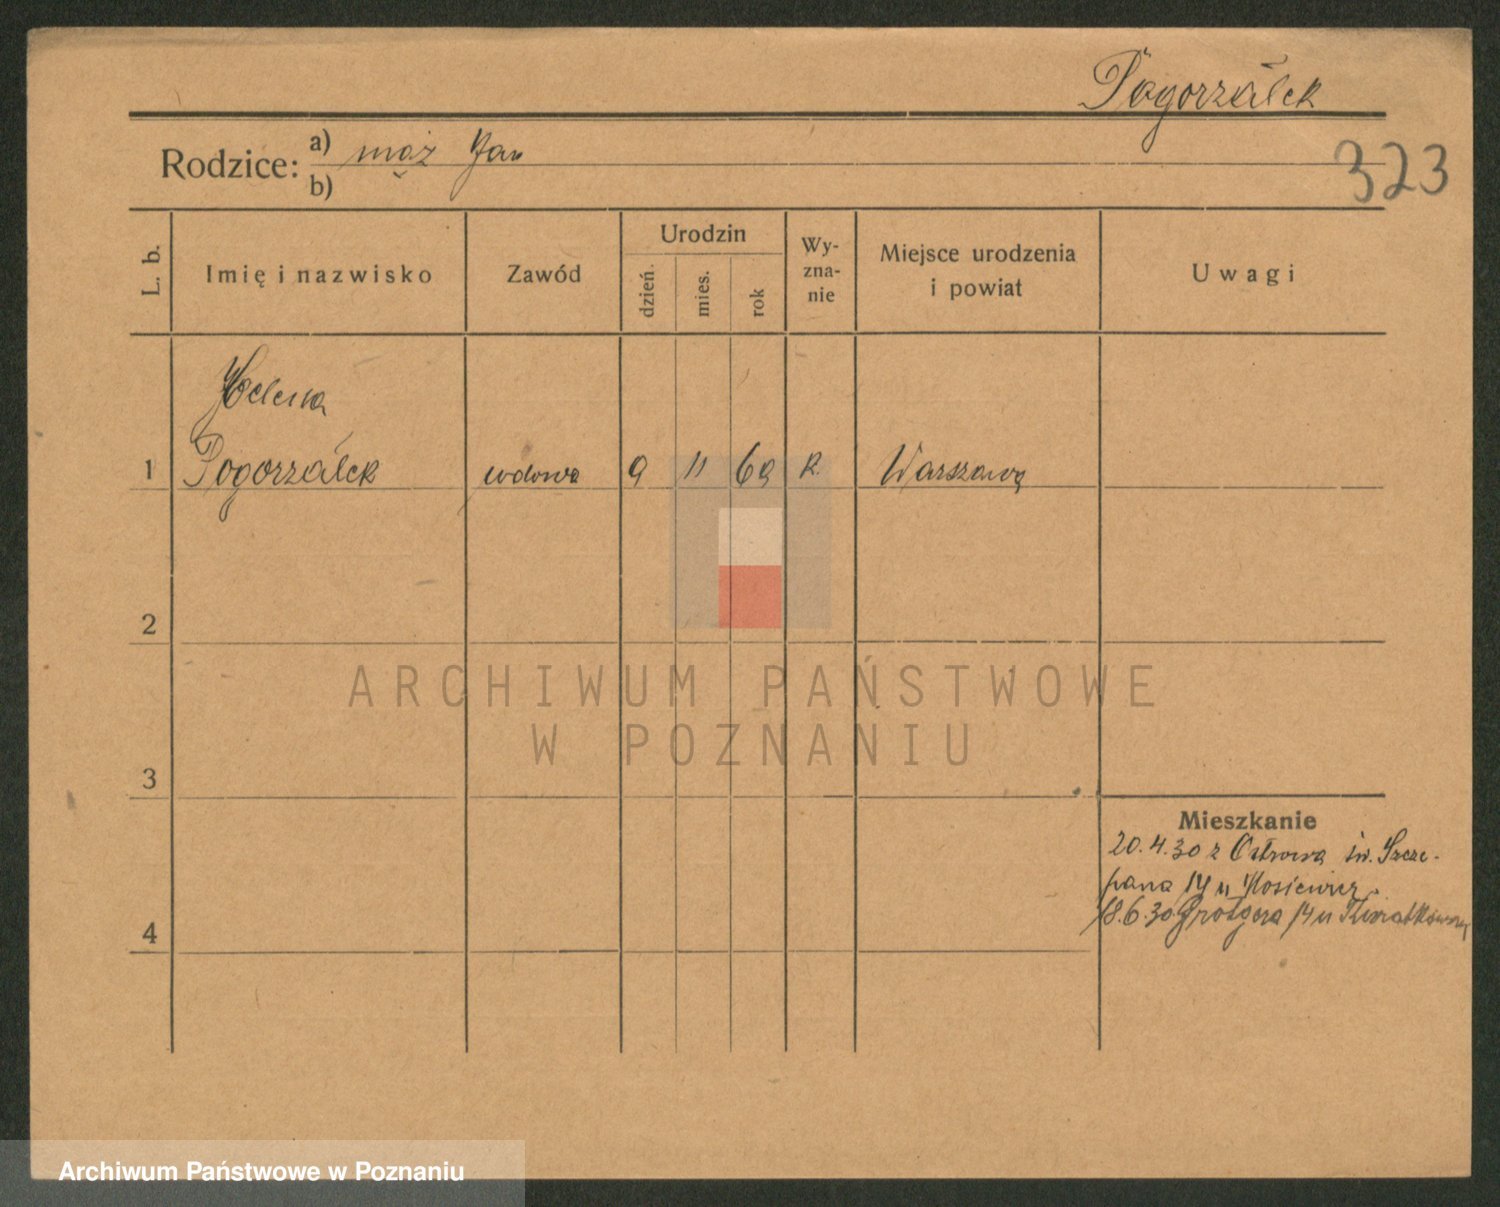 Pogorzałek
323
Rodzice: a) mąż Jan
b)
L. b.
Imię i nazwisko
Zawód
Urodzin
dzień.
mies.
rok
Wy-
zna-
nie
Miejsce urodzenia
i powiat
Uwagi
Helena
1 Pogorzałek wdowa 9 11 69 k Warszawa
2
3
4
Mieszkanie
20.4.30 z Ostrowa św. Szcze-
pana 14 u
18.6.30 Grotgera 14 u
ARCHIWUM PAŃSTWOWE
W POZNANIU
Archiwum Państwowe w Poznaniu